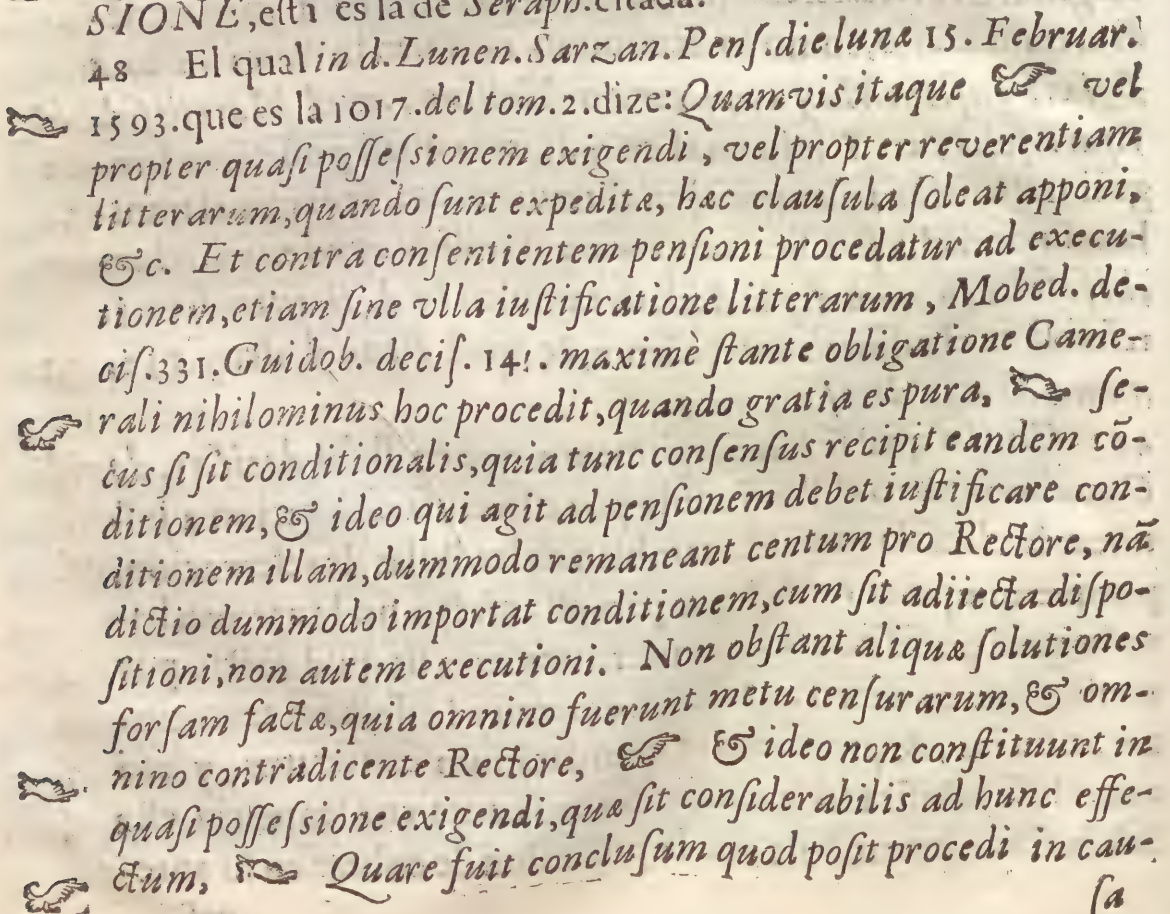 SIONE, esta es la de Seraph. citada.
48 El qual in d. Lunen. Sarzan. Pens. die lunæ 15. Februar.
1593. que es la 1017. del tom. 2. dize: Quamvis itaque ☞ vel
propter quasi possessionem exigendi, vel propter reverentiam
litterarum, quandò sunt expeditæ, hæc clausula soleat apponi,
&c. Et contra consentientem pensioni procedatur ad execu-
tionem, etiam sine vlla iustificatione litterarum, Mobed. de-
cis. 331. Guidob. decis. 14!. maximè stante obligatione Came-
rali nihilominus hoc procedit, quando gratia es pura, ☞ se-
cus si sit conditionalis, quia tunc consensus recipit eandem cõ-
ditionem, & ideo qui agit ad pensionem debet iustificare con-
ditionem illam, dummodo remaneant centum pro Rectore, nã
dictio dummodo importat conditionem, cum sit adiiecta dispo-
sitioni, non autem executioni. Non obstant aliquæ solutiones
forsam factæ, quia omnino fuerunt metu censurarum, & om-
nino contradicente Rectore, ☞ & ideo non constituunt in
quasi possessione exigendi, quæ sit considerabilis ad hunc effe-
ctum, ☞ Quare fuit conclusum quod posit procedi in cau-
sa